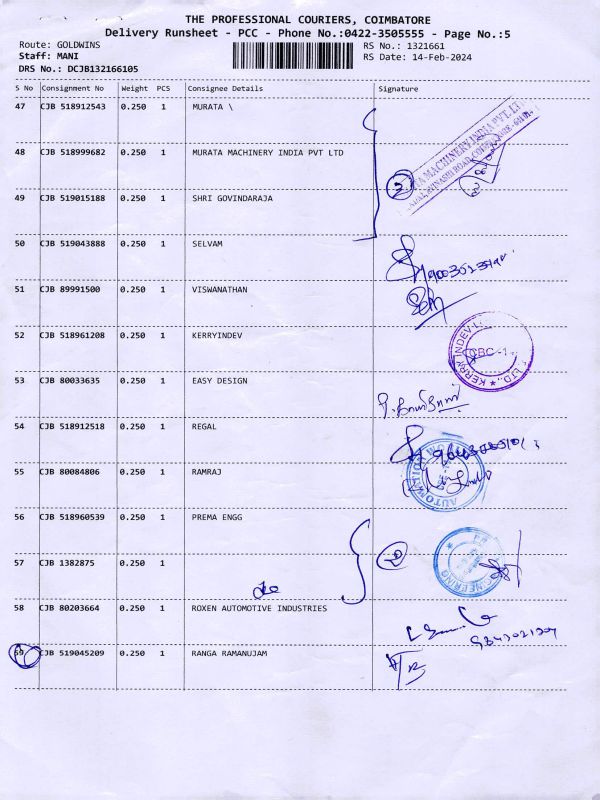 THE PROFESSIONAL COURIERS, COIMBATORE
Delivery Runsheet - PCC - Phone No.:0422-3505555 - Page No.:5
Route: GOLDWINS
RS No.: 1321661
Staff: MANI
RS Date: 14-Feb-2024
DRS No.: DCJB132166105
S No Consignment No Weight PCS Consignee Details Signature
47 CJB 518912543 0.250 1 MURATA \
48 CJB 518999682 0.250 1 MURATA MACHINERY INDIA PVT LTD
49 CJB 519015188 0.250 1 SHRI GOVINDARAJA
50 CJB 519043888 0.250 1 SELVAM
51 CJB 89991500 0.250 1 VISWANATHAN
52 CJB 518961208 0.250 1 KERRYINDEV
53 CJB 80033635 0.250 1 EASY DESIGN
54 CJB 518912518 0.250 1 REGAL
55 CJB 80084806 0.250 1 RAMRAJ
56 CJB 518960539 0.250 1 PREMA ENGG
57 CJB 1382875 0.250 1
58 CJB 80203664 0.250 1 ROXEN AUTOMOTIVE INDUSTRIES
59 CJB 519045209 0.250 1 RANGA RAMANUJAM